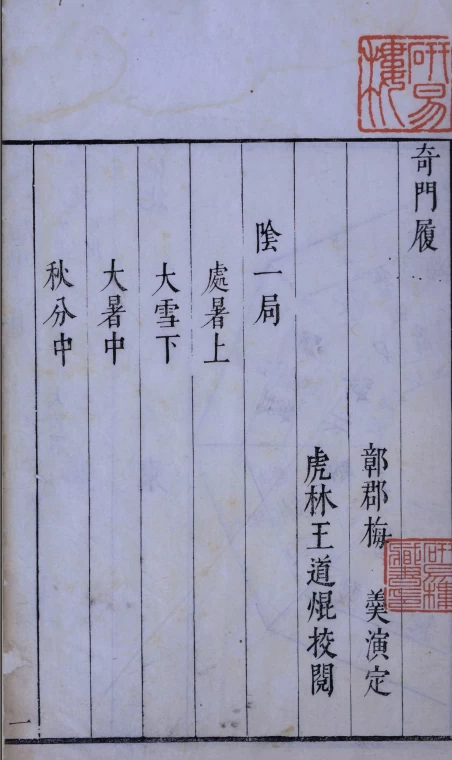 奇門履
鄣郡梅 羹演定
虎林王道焜校閱
陰一局
處暑上
大雪下
大暑中
秋分中
一
研易樓